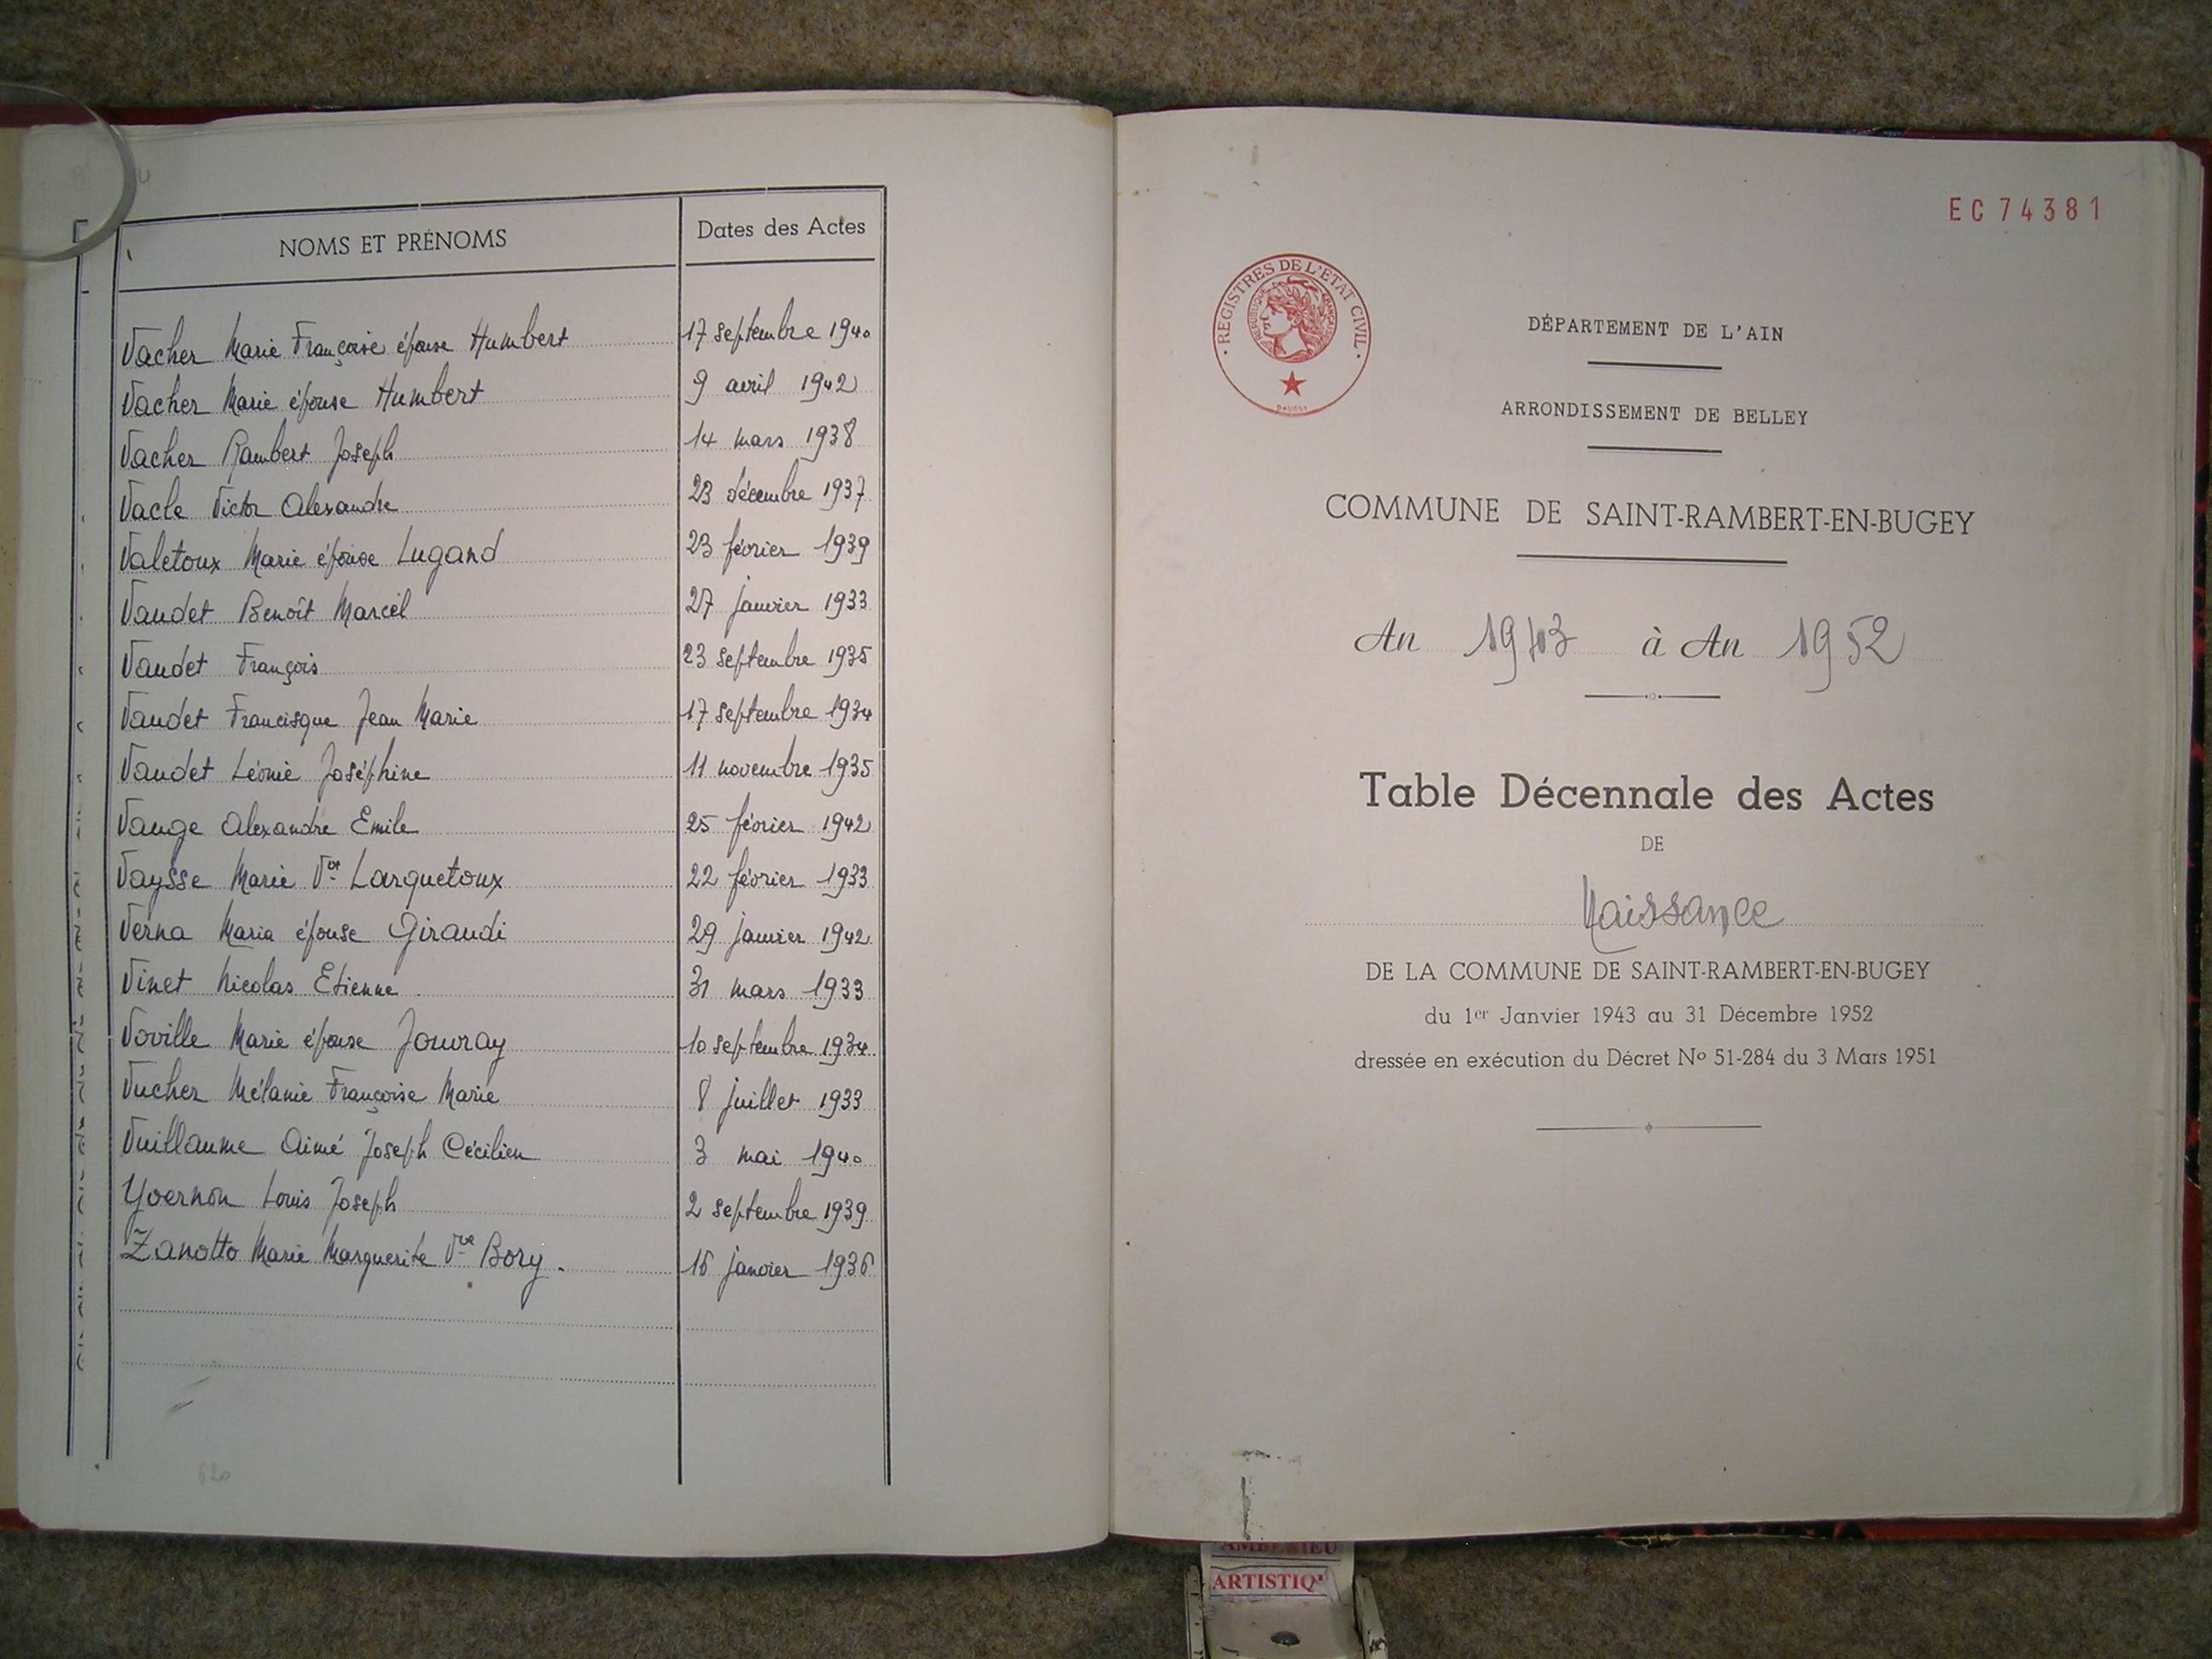 NOMS ET PRÉNOMS Dates des Actes
Vacher Marie Françoise épouse Humbert 17 septembre 1940
Vacher Marie épouse Humbert 9 avril 1942
Vacher Rambert Joseph 14 mars 1938
Vacle Victor Alexandre 23 décembre 1937
Valetoux Marie épouse Lugand 23 février 1939
Vaudet Benoît Marcel 27 janvier 1933
Vaudet François 23 septembre 1935
Vaudet Francisque Jean Marie 17 septembre 1934
Vaudet Léonie Joséphine 11 novembre 1935
Vauge Alexandre Emile 25 février 1942
Vaysse Marie Vve Larquetoux 22 février 1933
Verna Maria épouse Giraudi 29 janvier 1942
Vinet Nicolas Etienne 31 mars 1933
Voville Marie épouse Jouvray 10 septembre 1934
Vucher Mélanie Françoise Marie 8 juillet 1933
Vuillaume Aimé Joseph Cécilien 3 mai 1940
Yvernon Louis Joseph 2 septembre 1939
Zanotto Marie Marguerite Vve Bory. 16 janvier 1936
620
EC 74381
REGISTRES DE L'ÉTAT CIVIL
RÉPUBLIQUE FRANÇAISE
DÉPARTEMENT DE L'AIN
ARRONDISSEMENT DE BELLEY
COMMUNE DE SAINT-RAMBERT-EN-BUGEY
An 1943 à An 1952
Table Décennale des Actes
DE
Naissance
DE LA COMMUNE DE SAINT-RAMBERT-EN-BUGEY
du 1er Janvier 1943 au 31 Décembre 1952
dressée en exécution du Décret No 51-284 du 3 Mars 1951
ARTISTIQ